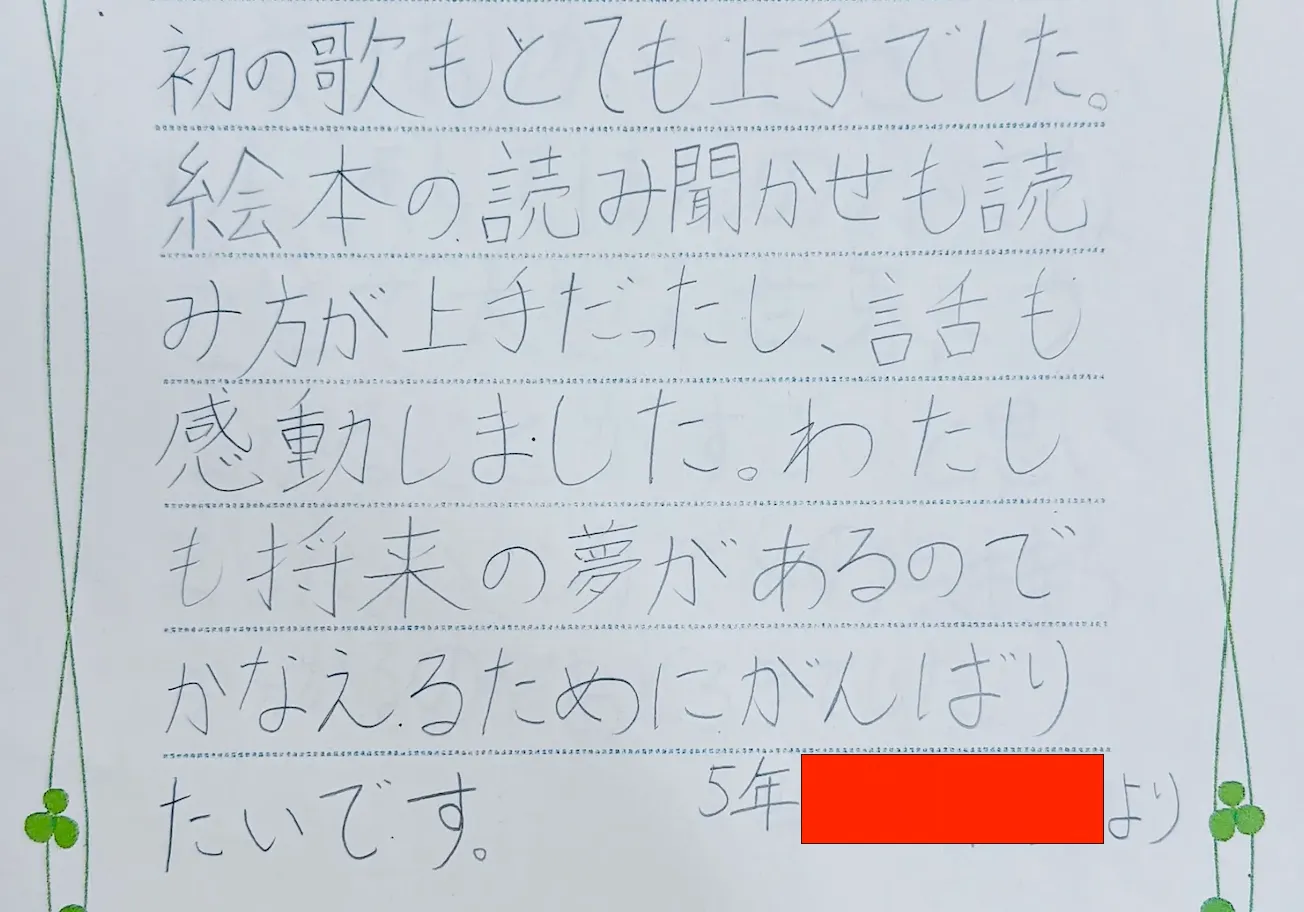 初の歌もとても上手でした。
絵本の読み聞かせも読
み方が上手だったし、話も
感動しました。わたし
も将来の夢があるので
かなえるためにがんばり
たいです。
5年
より